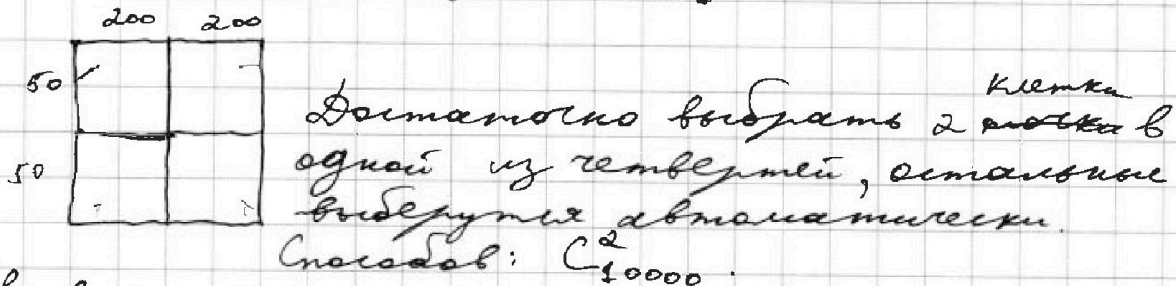 200 200
50
50
клетки
Достаточно выбрать 2 в
одной из четвертей, остальные
выберутся автоматически.
Способов: C²₁₀₀₀₀.